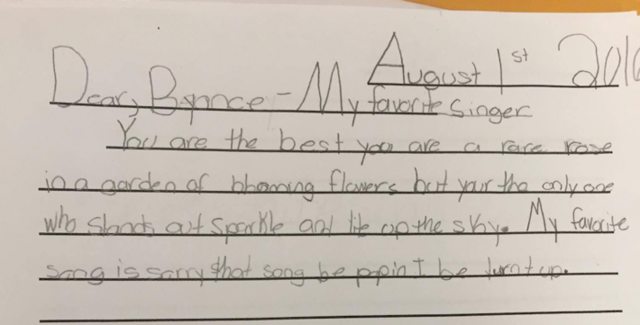 August 1st 201
Dear, Bynce - My favorite Singer
You are the best you are a rare rose
in a garden of blooming flowers but your the only one
who stands out sparkle and lite up the sky. My favorite
song is sorry that song be poppin I be turnt up.